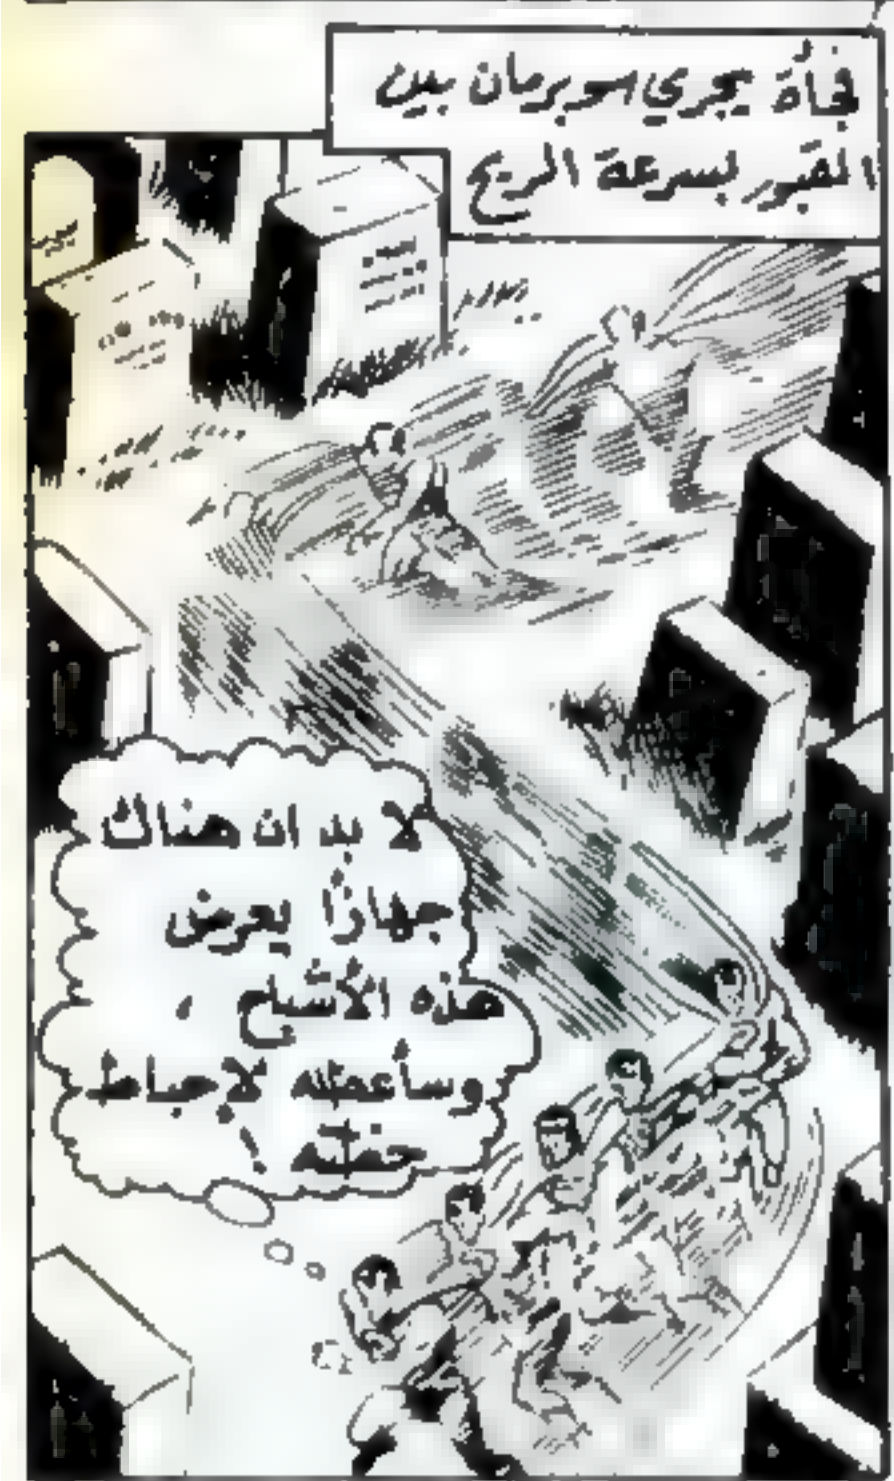 فجأة يجري سوبرمان بين
القبور بسرعة الريح
لا بد ان هناك
جهازًا يعرض
هذه الأشباح ،
وسأعطله لإحباط
خطته !